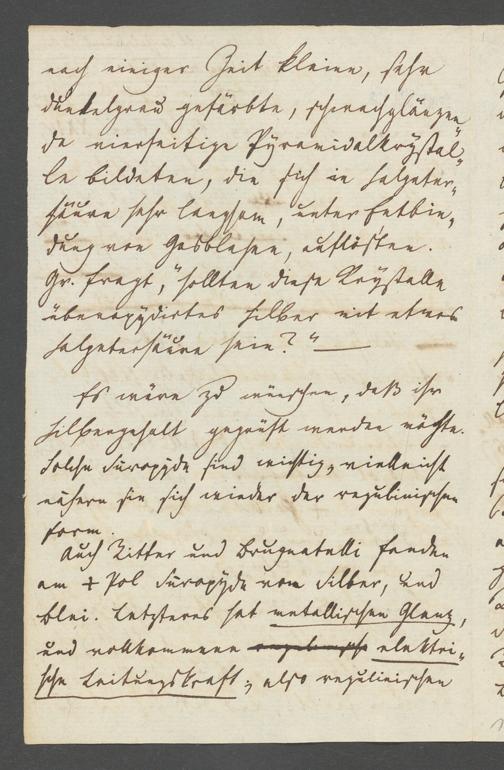 nach einiger Zeit kleine, sehr
dunkelgrau gefärbte, schwachglänzen
de vierseitige Pÿramidalkrÿstal„
le bildeten, die sich in Salpeter„
säure sehr langsam, unter Entbin„
dung von Gasblasen, auflösten.
Gr. fragt, "sollten diese Krÿstalle
überoxÿdirtes Silber mit etwas
Salpetersäure sein?" —
Es wäre zu wünschen, daß ihr
Silbergehalt geprüft werden möchte.
Solche Suroxÿde sind wichtig, vielleicht
nähern sie sich wieder der regulinischen
Form.
Auch Ritter und Brugnatelli fanden
am + Pol Suroxÿde vom Silber, und
Blei. Letzteres hat metallischen Glanz,
und vollkommene elektri„
sche Leitungskraft; also regulinischen